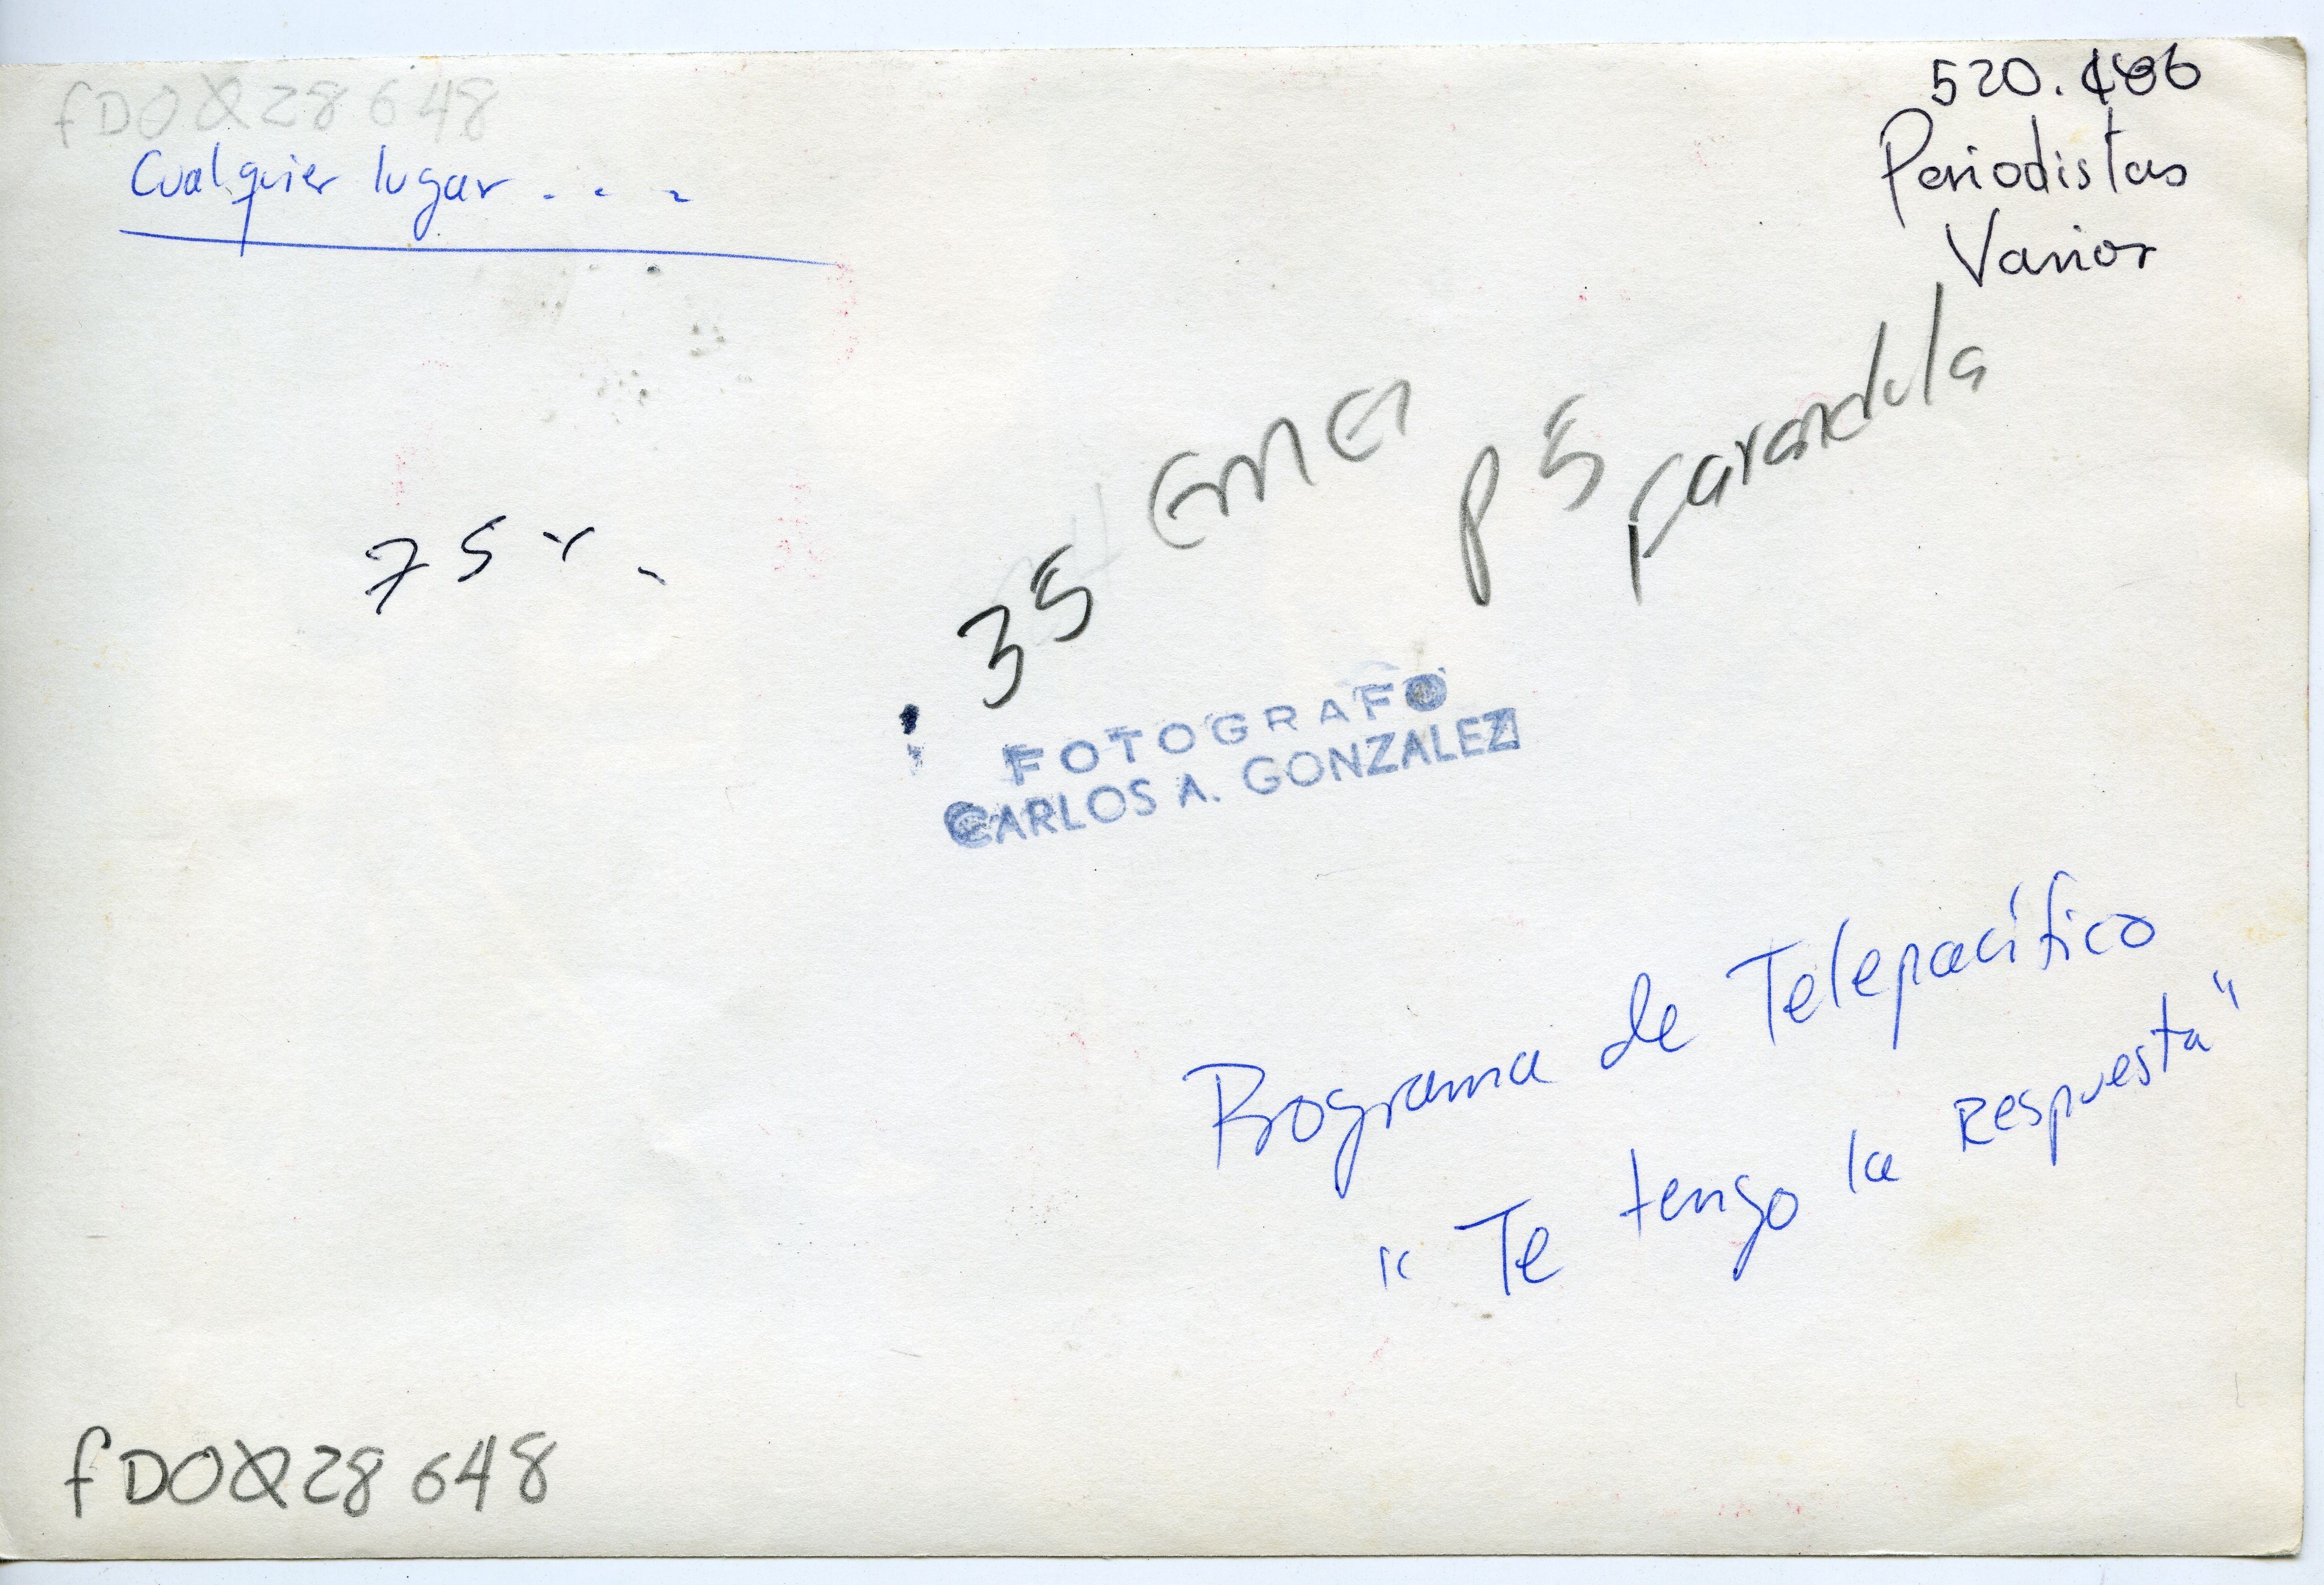 fDOQ28648
Cualquier lugar . . .
520.486
Periodistas
Varios
75 x
35 Eme
p 5
Farandula
FOTOGRAFO
CARLOS A. GONZALEZ
Programa de Telepacífico
"Te tengo la Respuesta"
fDOQ28648